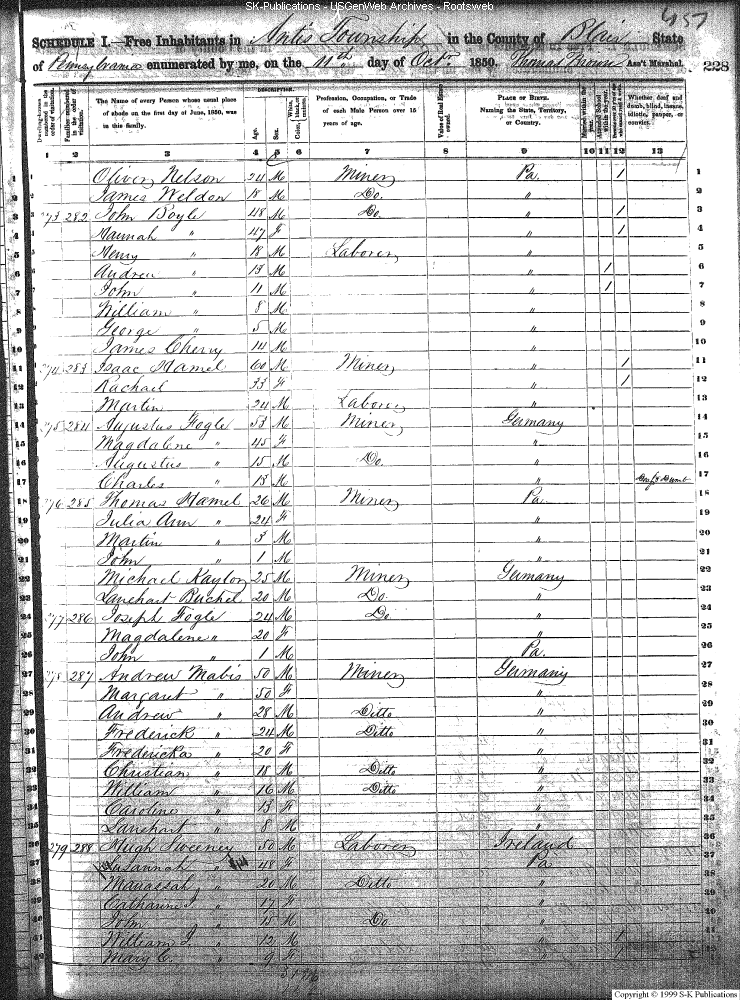 SK-Publications - USGenWeb Archives - Rootsweb
457
SCHEDULE I.—Free Inhabitants in Antis Township in the County of Blair State
of Pennsylvania enumerated by me, on the 11th day of Octr. 1850. Thomas Ass't Marshal. 228
DESCRIPTION.
Dwelling-houses numbered in the order of visitation. Families numbered in the order of visitation. The Name of every Person whose usual place of abode on the first day of June, 1850, was in this family. Age. Sex. White, Color, black, or mulatto. Profession, Occupation, or Trade of each Male Person over 15 years of age. Value of Real Estate owned. PLACE OF BIRTH. Naming the State, Territory, or Country. Married within the year. Attended School within the year. Whether deaf and dumb, blind, insane, idiotic, pauper, or convict.
1 2 3 4 5 6 7 8 9 10 11 12 13
1 Oliver Nelson 24 M Miner Pa. / 1
2 James Weldon 18 M Do. " 2
3 273 282 John Boyle 48 M Do. " / 3
4 Hannah " 47 F " / 4
5 Henry " 18 M Laborer " 5
6 Andrew " 13 M " / 6
7 John " 11 M " / 7
8 William " 8 M " 8
9 George " 5 M " 9
10 James Cherry 14 M " 10
11 274 283 Isaac Hamel 60 M Miner " / 11
12 Rachael 33 F " / 12
13 Martin 24 M Laborer " 13
14 275 284 Augustus Fogle 53 M Miner Germany 14
15 Magdalene " 45 F " 15
16 Augustus " 15 M Do. " 16
17 Charles " 13 M " Deaf & Dumb 17
18 276 285 Thomas Hamel 26 M Miner Pa. 18
19 Julia Ann " 24 F " 19
20 Martin " 3 M " 20
21 John " 1 M " 21
22 Michael Kaylor 25 M Miner Germany 22
23 Lanehart Buchel 20 M Do. " 23
24 277 286 Joseph Fogle 24 M Do " 24
25 Magdalene " 20 F " 25
26 John " 1 M Pa. 26
27 278 287 Andrew Mabis 50 M Miner Germany 27
28 Margaret " 50 F " 28
29 Andrew " 28 M Ditto " 29
30 Frederick " 24 M Ditto " 30
31 Fredericka " 20 F " 31
32 Christian " 18 M Ditto " 32
33 William " 16 M Ditto " 33
34 Caroline " 13 F " 34
35 Lanehart " 8 M " 35
36 279 288 Hugh Sweeney 50 M Laborer Ireland 36
37 Susannah " 48 F Pa 37
38 Manassah " 20 M Ditto " 38
39 Catharine J. " 17 F " 39
40 John " 15 M Do " 40
41 William J. " 12 M " / 41
42 Mary C. " 9 F " / 42
Copyright © 1999 S-K Publications